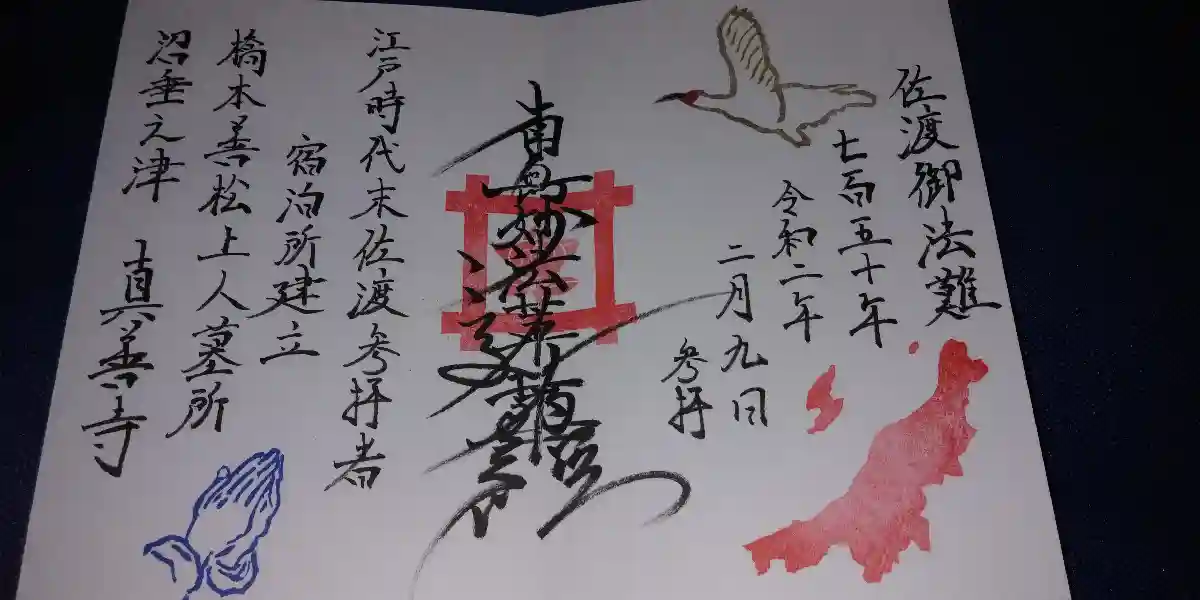 佐渡御法難
七百五十年
令和二年
二月九日
参拝
南無妙法蓮華経
江戸時代末佐渡参拝者
宿泊所建立
橋本善松上人墓所
沼垂之津 真善寺